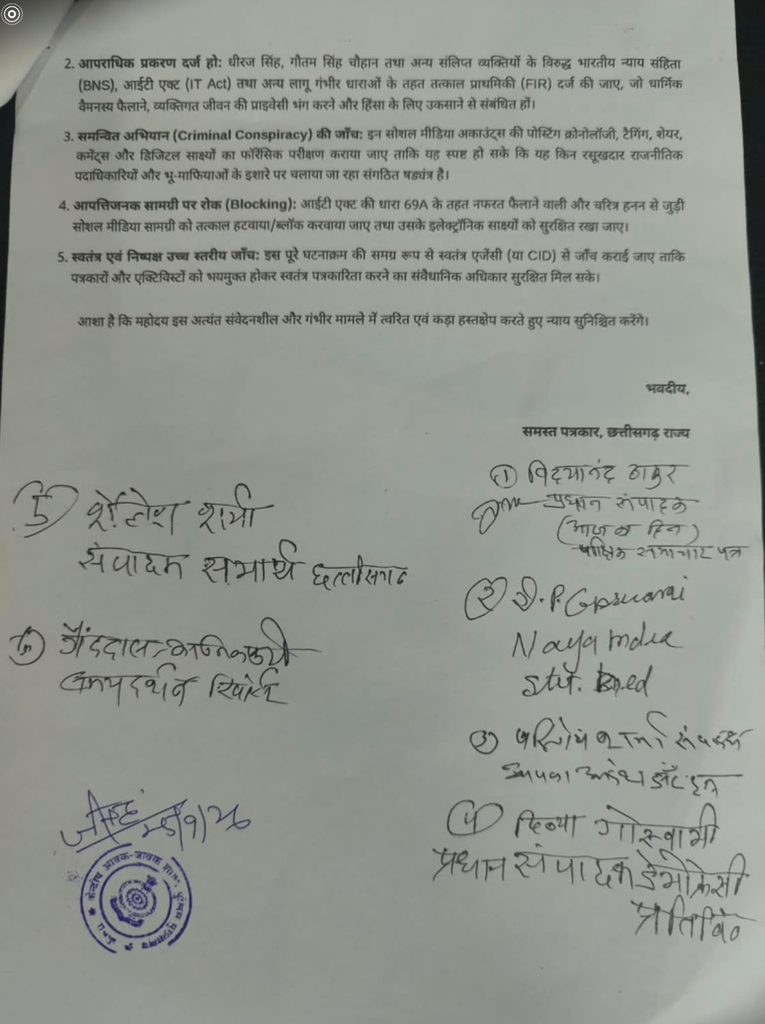 2. आपराधिक प्रकरण दर्ज हो: धीरज सिंह, गौतम सिंह चौहान तथा अन्य संलिप्त व्यक्तियों के विरुद्ध भारतीय न्याय संहिता
(BNS), आईटी एक्ट (IT Act) तथा अन्य लागू गंभीर धाराओं के तहत तत्काल प्राथमिकी (FIR) दर्ज की जाए, जो धार्मिक
वैमनस्य फैलाने, व्यक्तिगत जीवन की प्राइवेसी भंग करने और हिंसा के लिए उकसाने से संबंधित हों।
3. समन्वित अभियान (Criminal Conspiracy) की जाँच: इन सोशल मीडिया अकाउंट्स की पोस्टिंग क्रोनोलॉजी, टैगिंग, शेयर,
कमेंट्स और डिजिटल साक्ष्यों का फोरेंसिक परीक्षण कराया जाए ताकि यह स्पष्ट हो सके कि यह किन रसूखदार राजनीतिक
पदाधिकारियों और भू-माफियाओं के इशारे पर चलाया जा रहा संगठित षड्यंत्र है।
4. आपत्तिजनक सामग्री पर रोक (Blocking): आईटी एक्ट की धारा 69A के तहत नफरत फैलाने वाली और चरित्र हनन से जुड़ी
सोशल मीडिया सामग्री को तत्काल हटवाया/ब्लॉक करवाया जाए तथा उसके इलेक्ट्रॉनिक साक्ष्यों को सुरक्षित रखा जाए।
5. स्वतंत्र एवं निष्पक्ष उच्च स्तरीय जाँच: इस पूरे घटनाक्रम की समग्र रूप से स्वतंत्र एजेंसी (या CID) से जाँच कराई जाए ताकि
पत्रकारों और एक्टिविस्टों को भयमुक्त होकर स्वतंत्र पत्रकारिता करने का संवैधानिक अधिकार सुरक्षित मिल सके।
आशा है कि महोदय इस अत्यंत संवेदनशील और गंभीर मामले में त्वरित एवं कड़ा हस्तक्षेप करते हुए न्याय सुनिश्चित करेंगे।
भवदीय,
समस्त पत्रकार, छत्तीसगढ़ राज्य
① विद्यानंद ठाकुर
प्रधान संपादक
(आज का दिन)
पाक्षिक समाचार पत्र
② D.P. Goswami
Naya India
③ संपादक
④ दिव्या गोस्वामी
प्रधान संपादक डेमोक्रेसी
प्रतिबिंब
⑤ शैलेश शर्मा
संपादक सभार्थ छत्तीसगढ़
⑥
रिपोर्टर